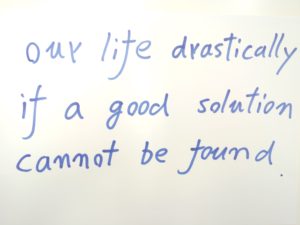 our life drastically
if a good solution
cannot be found.